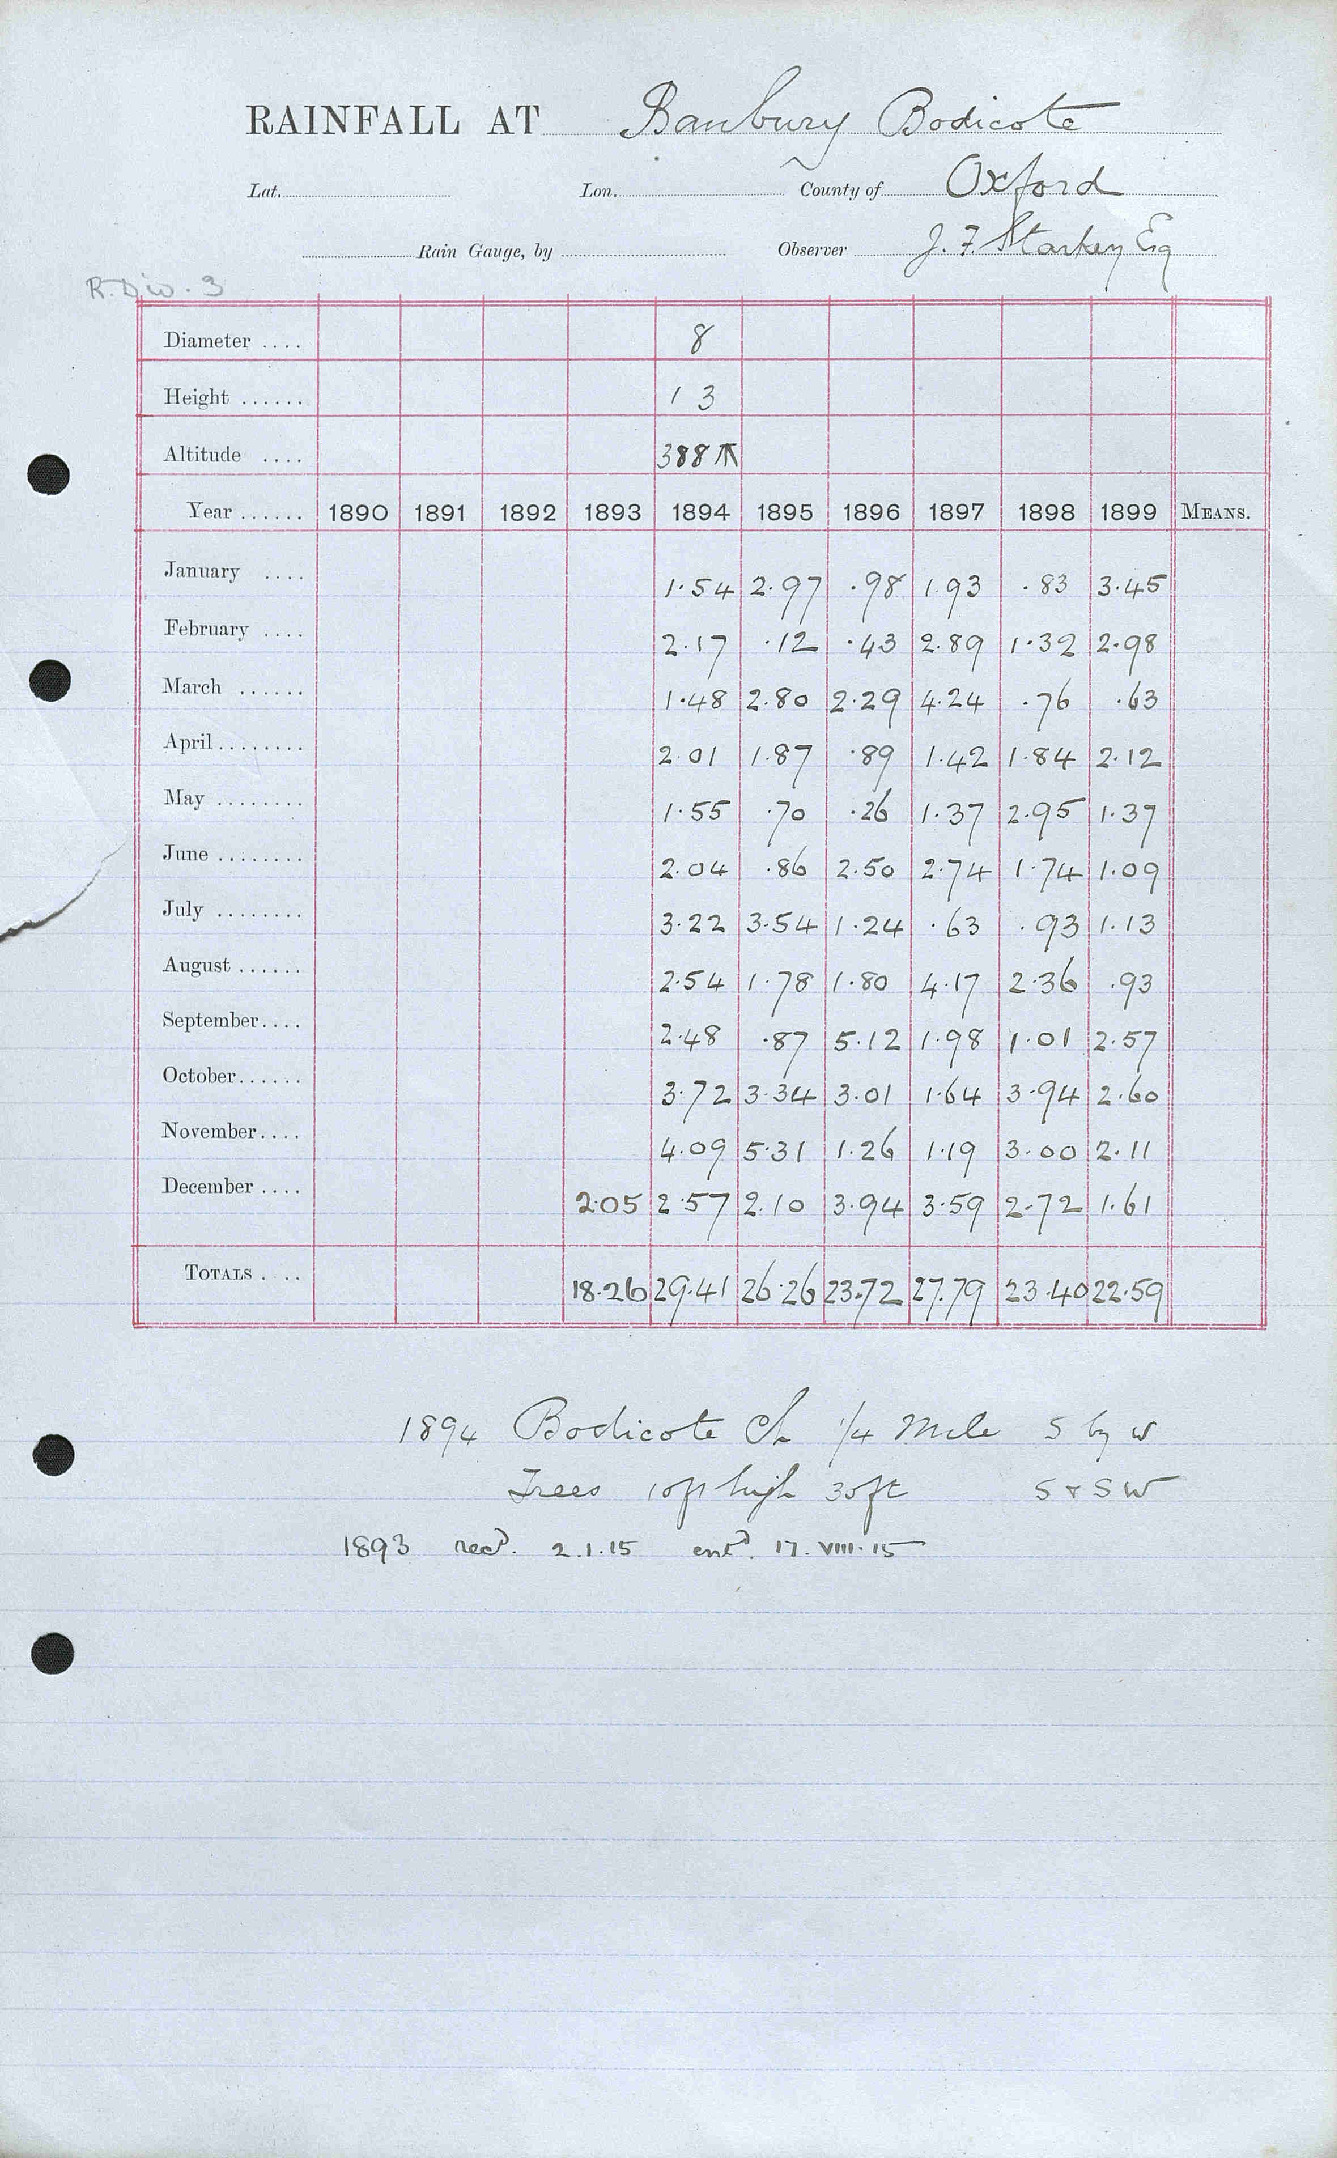 RAINFALL AT Banbury Bodicote
Lat. Lon. County of Oxford
Rain Gauge, by Observer J. F. Starkey Esq
R. Div. 3
Diameter .... 8
Height ...... 1 3
Altitude .... 388
Year ...... 1890 1891 1892 1893 1894 1895 1896 1897 1898 1899 MEANS.
January .... 1.54 2.97 .98 1.93 .83 3.45
February .... 2.17 .12 .43 2.89 1.32 2.98
March ...... 1.48 2.80 2.29 4.24 .76 .63
April ........ 2.01 1.87 .89 1.42 1.84 2.12
May ........ 1.55 .70 .26 1.37 2.95 1.37
June ........ 2.04 .86 2.50 2.74 1.74 1.09
July ........ 3.22 3.54 1.24 .63 .93 1.13
August ...... 2.54 1.78 1.80 4.17 2.36 .93
September.... 2.48 .87 5.12 1.98 1.01 2.57
October...... 3.72 3.34 3.01 1.64 3.94 2.60
November.... 4.09 5.31 1.26 1.19 3.00 2.11
December .... 2.05 2.57 2.10 3.94 3.59 2.72 1.61
TOTALS .... 18.26 29.41 26.26 23.72 27.79 23.40 22.59
1894 Bodicote Ch 1/4 Mile S by W
Trees 10ft high 30ft S & SW
1893 recd. 2.1.15 entd. 17.VIII.15